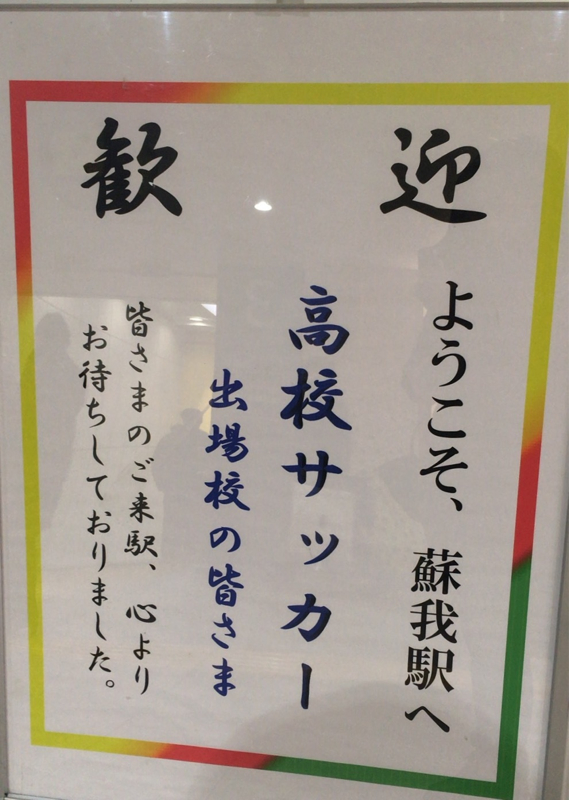 歓迎
ようこそ、蘇我駅へ
高校サッカー
出場校の皆さま
皆さまのご来駅、心より
お待ちしておりました。